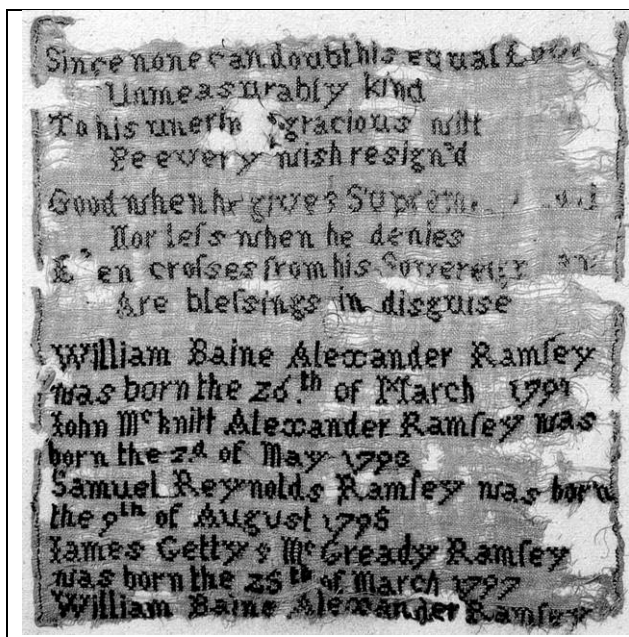 Since none can doubt his equal Love
Unmeasurably kind
To his unerin gracious will
Be every wish resign'd
Good when he gives Suprem
Nor leſs when he denies
E'en croſses from his Sovereign
Are bleſsings in disguise
William Baine Alexander Ramſey
was born the 26.th of March 1791
John McKnitt Alexander Ramſey was
born the 2.d of May 1793
Samuel Reynolds Ramſey was born
the 9th of August 1795
James Gettys McGready Ramſey
was born the 25th of March 1797
William Baine Alexander Ramſey